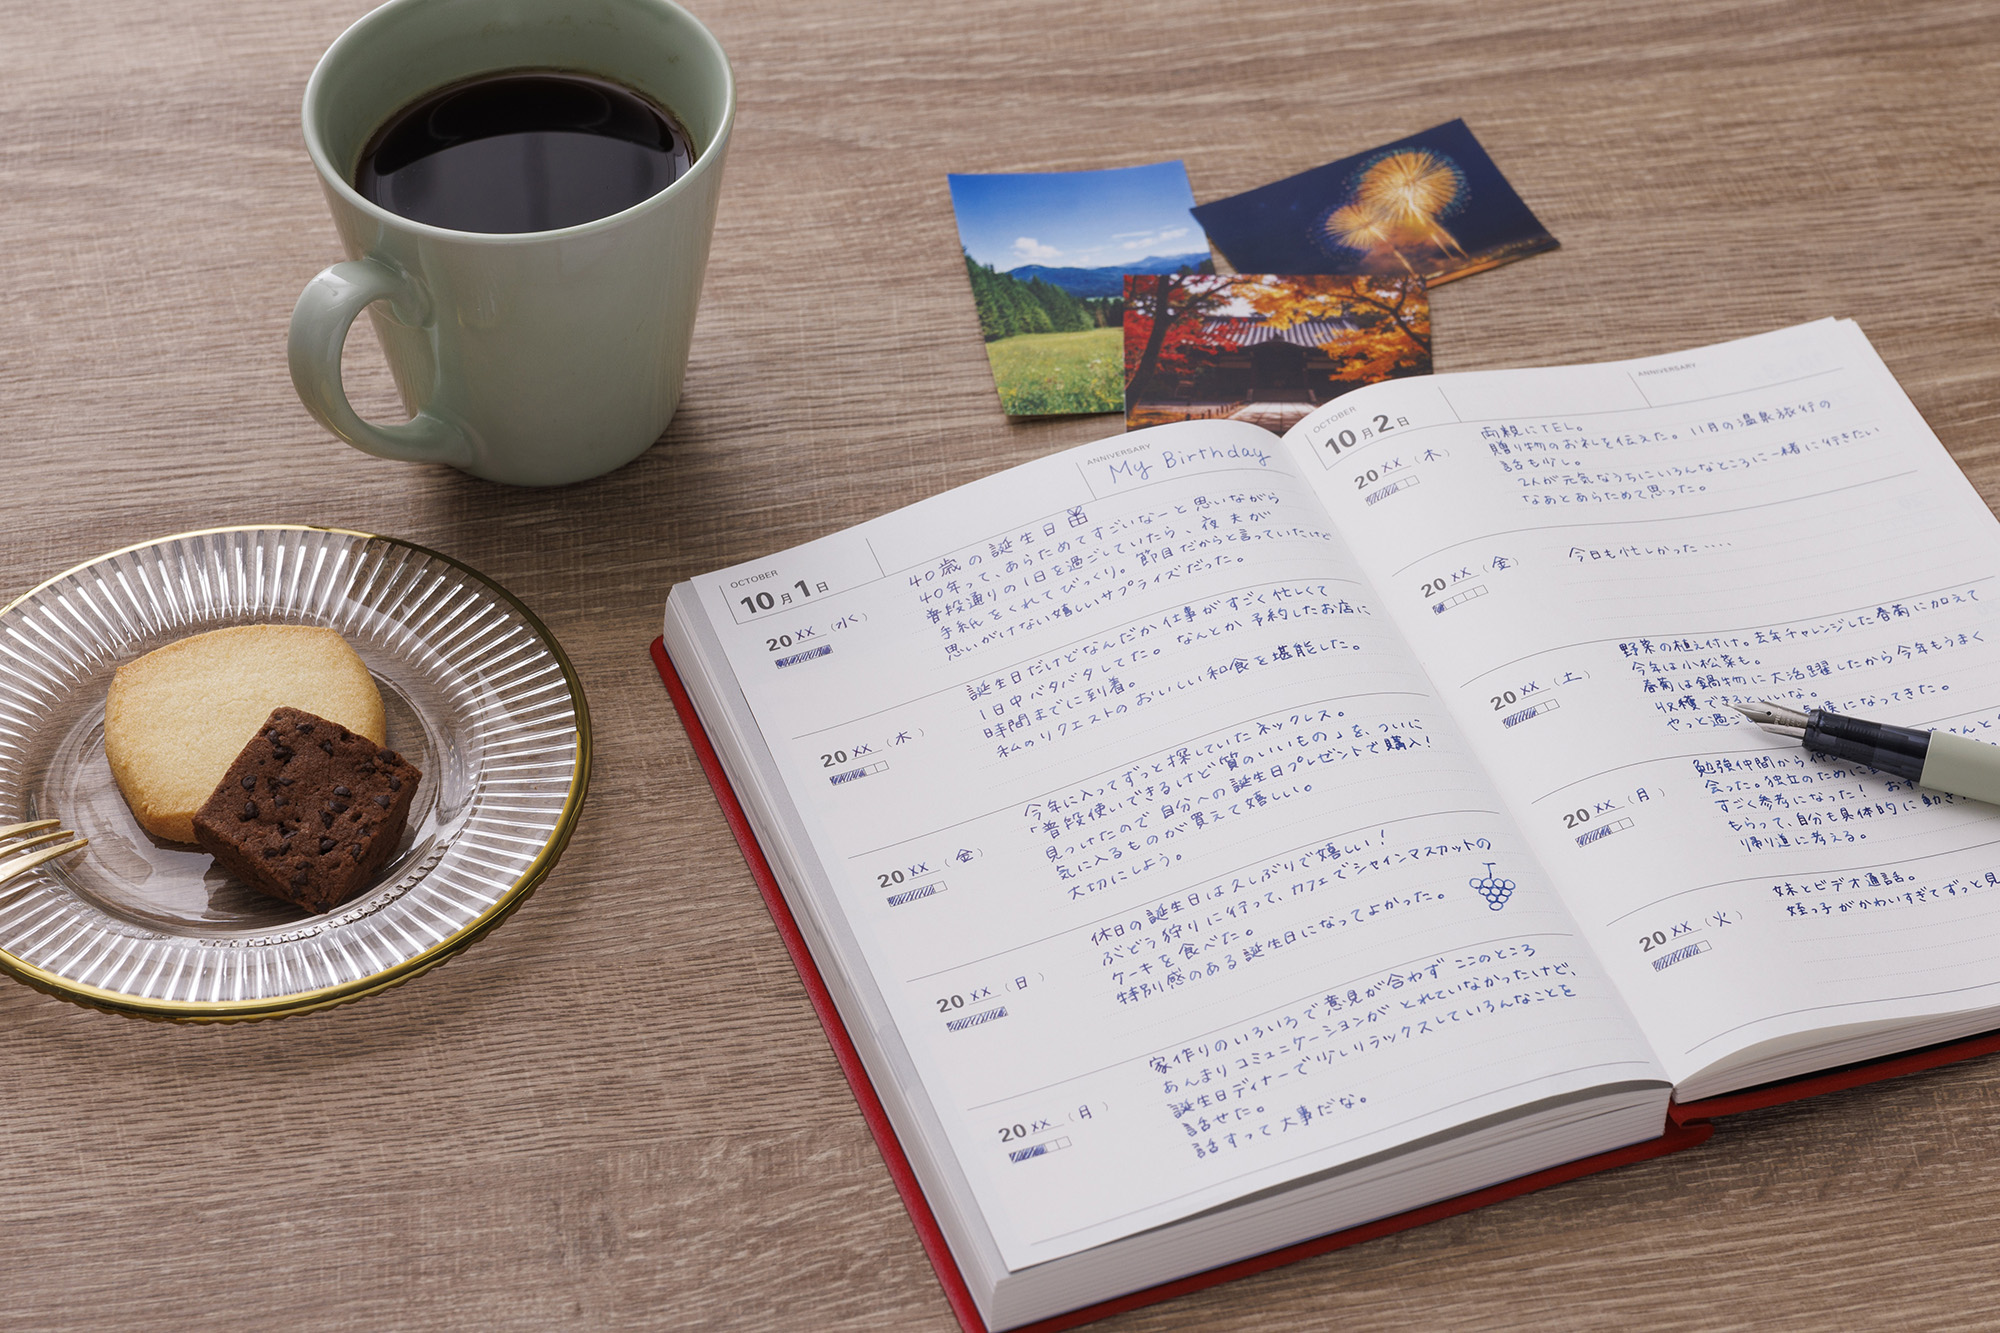 OCTOBER
10月1日
ANNIVERSARY
My Birthday
20XX (水)
40歳の誕生日
40年って、あらためてすごいなーと思いながら
普段通りの1日を過ごしていたら、夜 夫が
手紙をくれてびっくり。節目だからと言っていたけど
思いがけない嬉しいサプライズだった。
20XX (木)
誕生日だけどなんだか仕事がすごく忙しくて
1日中バタバタしてた。なんとか予約したお店に
時間までに到着。
私のリクエストのおいしい和食を堪能した。
20XX (金)
今年に入ってずっと探していたネックレス。
「普段使いできるけど質のいいもの」を、ついに
見つけたので自分への誕生日プレゼントで購入!
気に入るものが買えて嬉しい。
大切にしよう。
20XX (日)
休日の誕生日は久しぶりで嬉しい!
ぶどう狩りに行って、カフェでシャインマスカットの
ケーキを食べた。
特別感のある誕生日になってよかった。
20XX (月)
家作りのいろいろで意見が合わず ここのところ
あんまりコミュニケーションがとれていなかったけど、
誕生日ディナーで少しリラックスしていろんなことを
話せた。
話すって大事だな。
OCTOBER
10月2日
ANNIVERSARY
20XX (木)
両親にTEL。
贈り物のお礼を伝えた。11月の温泉旅行の
話も少し。
2人が元気なうちにいろんなところに一緒に行きたい
なあとあらためて思った。
20XX (金)
今日も忙しかった····
20XX (土)
野菜の植え付け。去年チャレンジした春菊に加えて
今年は小松菜も。
春菊は鍋物に大活躍したから今年もうまく
収穫できるといいな。
やっと過ご 気候になってきた。
20XX (月)
勉強仲間から さんと
会った。独立のために
すごく参考になった!
もらって、自分も具体的に動き
帰り道に考える。
20XX (火)
妹とビデオ通話。
姪っ子がかわいすぎてずっと見